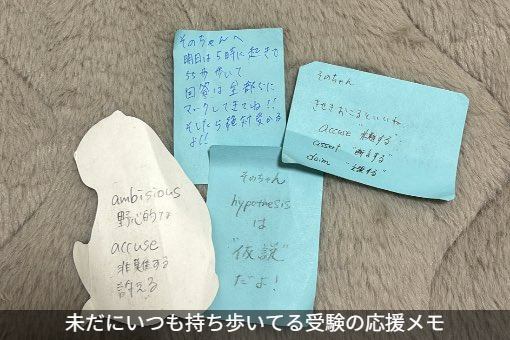 そのちゃんへ
明日は5時に起きて
55歩歩いて
回答は全部5に
マークしてきてね!!
そしたら絶対受かる
よ!!
そのちゃん
きせきおこるといいね
accuse "非難する"
assert "断言する"
claim "主張する"
ambisious
野心的な
accuse
非難する
訴える
そのちゃん
hypothesis
は
"仮説"
だよ!
未だにいつも持ち歩いてる受験の応援メモ